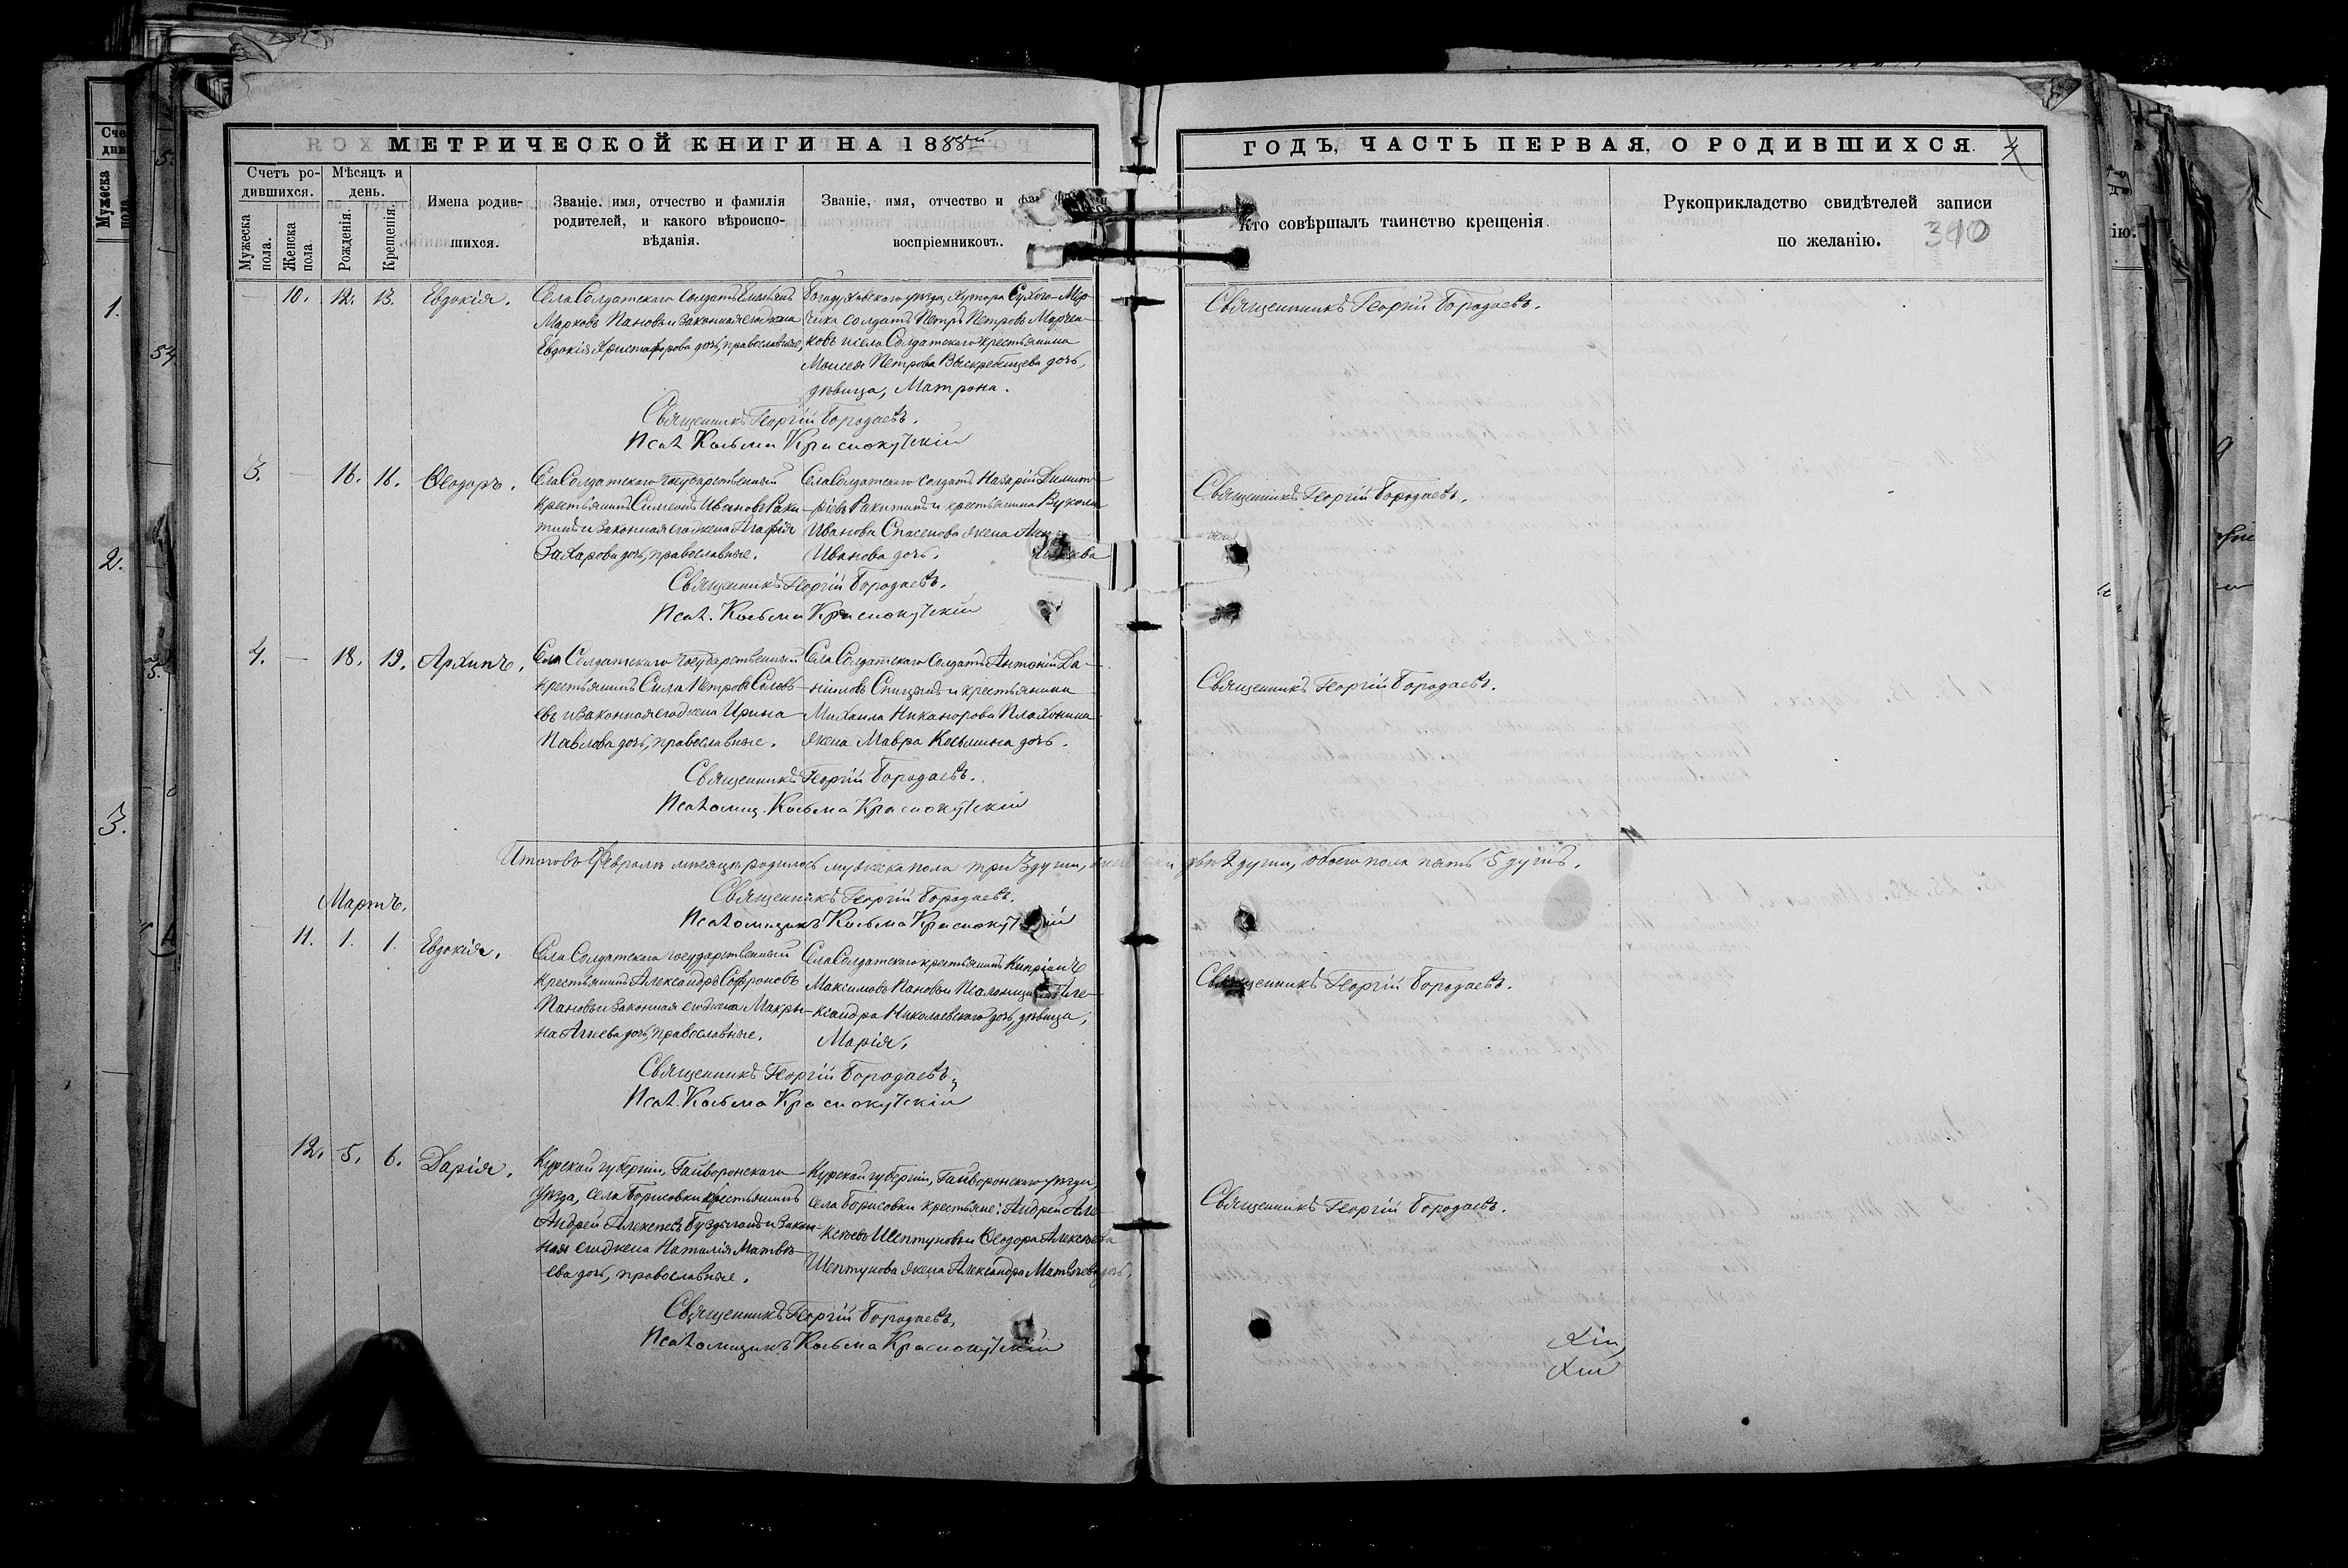 МЕТРИЧЕСКОЙ КНИГИ НА 1888й
ГОДЪ, ЧАСТЬ ПЕРВАЯ, О РОДИВШИХСЯ.
Счетъ родившихся.
Мужеска пола.
Женска пола.
Мѣсяцъ и день.
Рожденія.
Крещенія.
Имена родившихся.
Званіе, имя, отчество и фамилія
родителей, и какого вѣроиспо-
вѣданія.
Званіе, имя, отчество и
воспріемниковъ.
Кто совѣршалъ таинство крещенія.
Рукоприкладство свидѣтелей записи
по желанію.
310
10. 12. 13. Евдокія.
Села Солдатскаго солдатъ Емельянъ
Марковъ Пановъ и законная его жена
Евдокія Христофорова дочь, православные,
Богодуховскаго уѣзда, Хутора Сухого-Мер-
чика солдатъ Петръ Петровъ Марчен-
ковъ и села Солдатскаго крестьянина
Моисея Петрова Выскребенцева дочь,
дѣвица, Матрона.
Священникъ Георгій Бородаевъ.
Псал. Косьма Краснокутскій
Священникъ Георгій Бородаевъ.
3. — 16. 16. Ѳеодоръ.
Села Солдатскаго государственный
крестьянинъ Симеонъ Ивановъ Раки-
тинъ и законная его жена Агафія
Захарова дочь, православные.
Села Солдатскаго солдатъ Назарій Димит-
ріевъ Ракитинъ и крестьянина Вукола
Иванова Спасенова жена
Иванова дочь.
Священникъ Георгій Бородаевъ.
Псал. Косьма Краснокутскій
Священникъ Георгій Бородаевъ.
4. — 18. 19. Архипъ.
Села Солдатскаго государственный
крестьянинъ Сила Петровъ Соловь-
евъ и законная его жена Ирина
Павлова дочь, православные.
Села Солдатскаго солдатъ Антоній Да-
ніиловъ Спицынъ и крестьянина
Михаила Никанорова Плахонина
жена Мавра Косьмина дочь.
Священникъ Георгій Бородаевъ.
Псаломщ. Косьма Краснокутскій
Священникъ Георгій Бородаевъ.
Итого въ Февралѣ мѣсяцѣ родилось мужеска пола три 3 души, двѣ 2 души, обоего пола пять 5 душъ.
Священникъ Георгій Бородаевъ.
Псаломщикъ Косьма Краснокутскій
Мартъ.
11. 1. 1. Евдокія.
Села Солдатскаго государственный
крестьянинъ Александръ Софроновъ
Пановъ и законная его жена Макри-
на Агѣева дочь, православные.
Села Солдатскаго крестьянинъ Кипріанъ
Максимовъ Пановъ и псаломщика Але-
ксандра Николаевскаго дочь, дѣвица,
Марія.
Священникъ Георгій Бородаевъ.
Псал. Косьма Краснокутскій
Священникъ Георгій Бородаевъ.
12. 5. 6. Дарія.
Курской губерніи, Грайворонскаго
уѣзда, села Борисовки крестьянинъ
Андрей Алексѣевъ и закон-
ная его жена Наталія Матвѣ-
ева дочь, православные.
Курской губерніи, Грайворонскаго уѣзда,
села Борисовки крестьяне: Андрей Але-
ксѣевъ Шептуновъ и Ѳеодора Алексѣева
Шептунова жена Александра Матвѣева дочь.
Священникъ Георгій Бородаевъ.
Псаломщикъ Косьма Краснокутскій
Священникъ Георгій Бородаевъ.